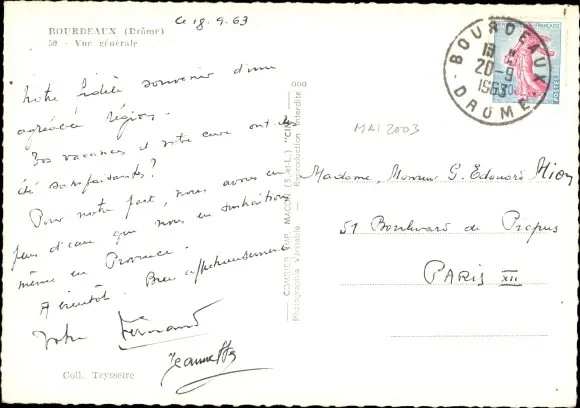 Ce 18.9.63
BOURDEAUX (Drôme)
50 - Vue générale
Notre fidèle souvenir d'une
agréable région.
Vos vacances et votre cure ont elles
été satisfaisantes?
Pour notre part, nous avons eu
plus d'eau que nous en souhaitions
même en Provence.
A bientôt. Bien affectueusement
Votre Fernand
Jeannette
Coll. Teysseire
000
COMBIER IMP. MACON (S.-et-L.) "CIM"
Photographie Véritable - Reproduction Interdite
BOURDEAUX
20-9
1963
DROME
FRANÇAISE
POSTES
MAI 2003
Madame, Monsieur G. Edouard Hion
51 Boulevard de Picpus
PARIS XII